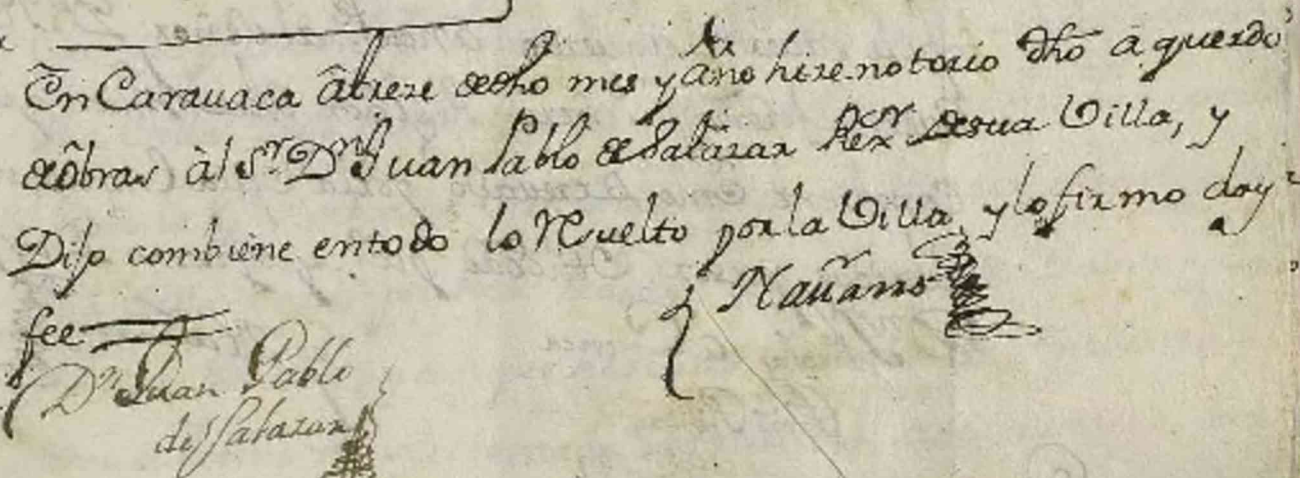 En Carauaca â treze de dho mes y año hize notorio dho aquerdo
de ôbras àl Sr. Dn. Juan Pablo de Salazar Rexor desua Villa, y
Dijo combiene en todo lo Rvelto por la Villa, y lo firmo doy
fee
Nauarro
Dn Juan Pablo
de Salazar